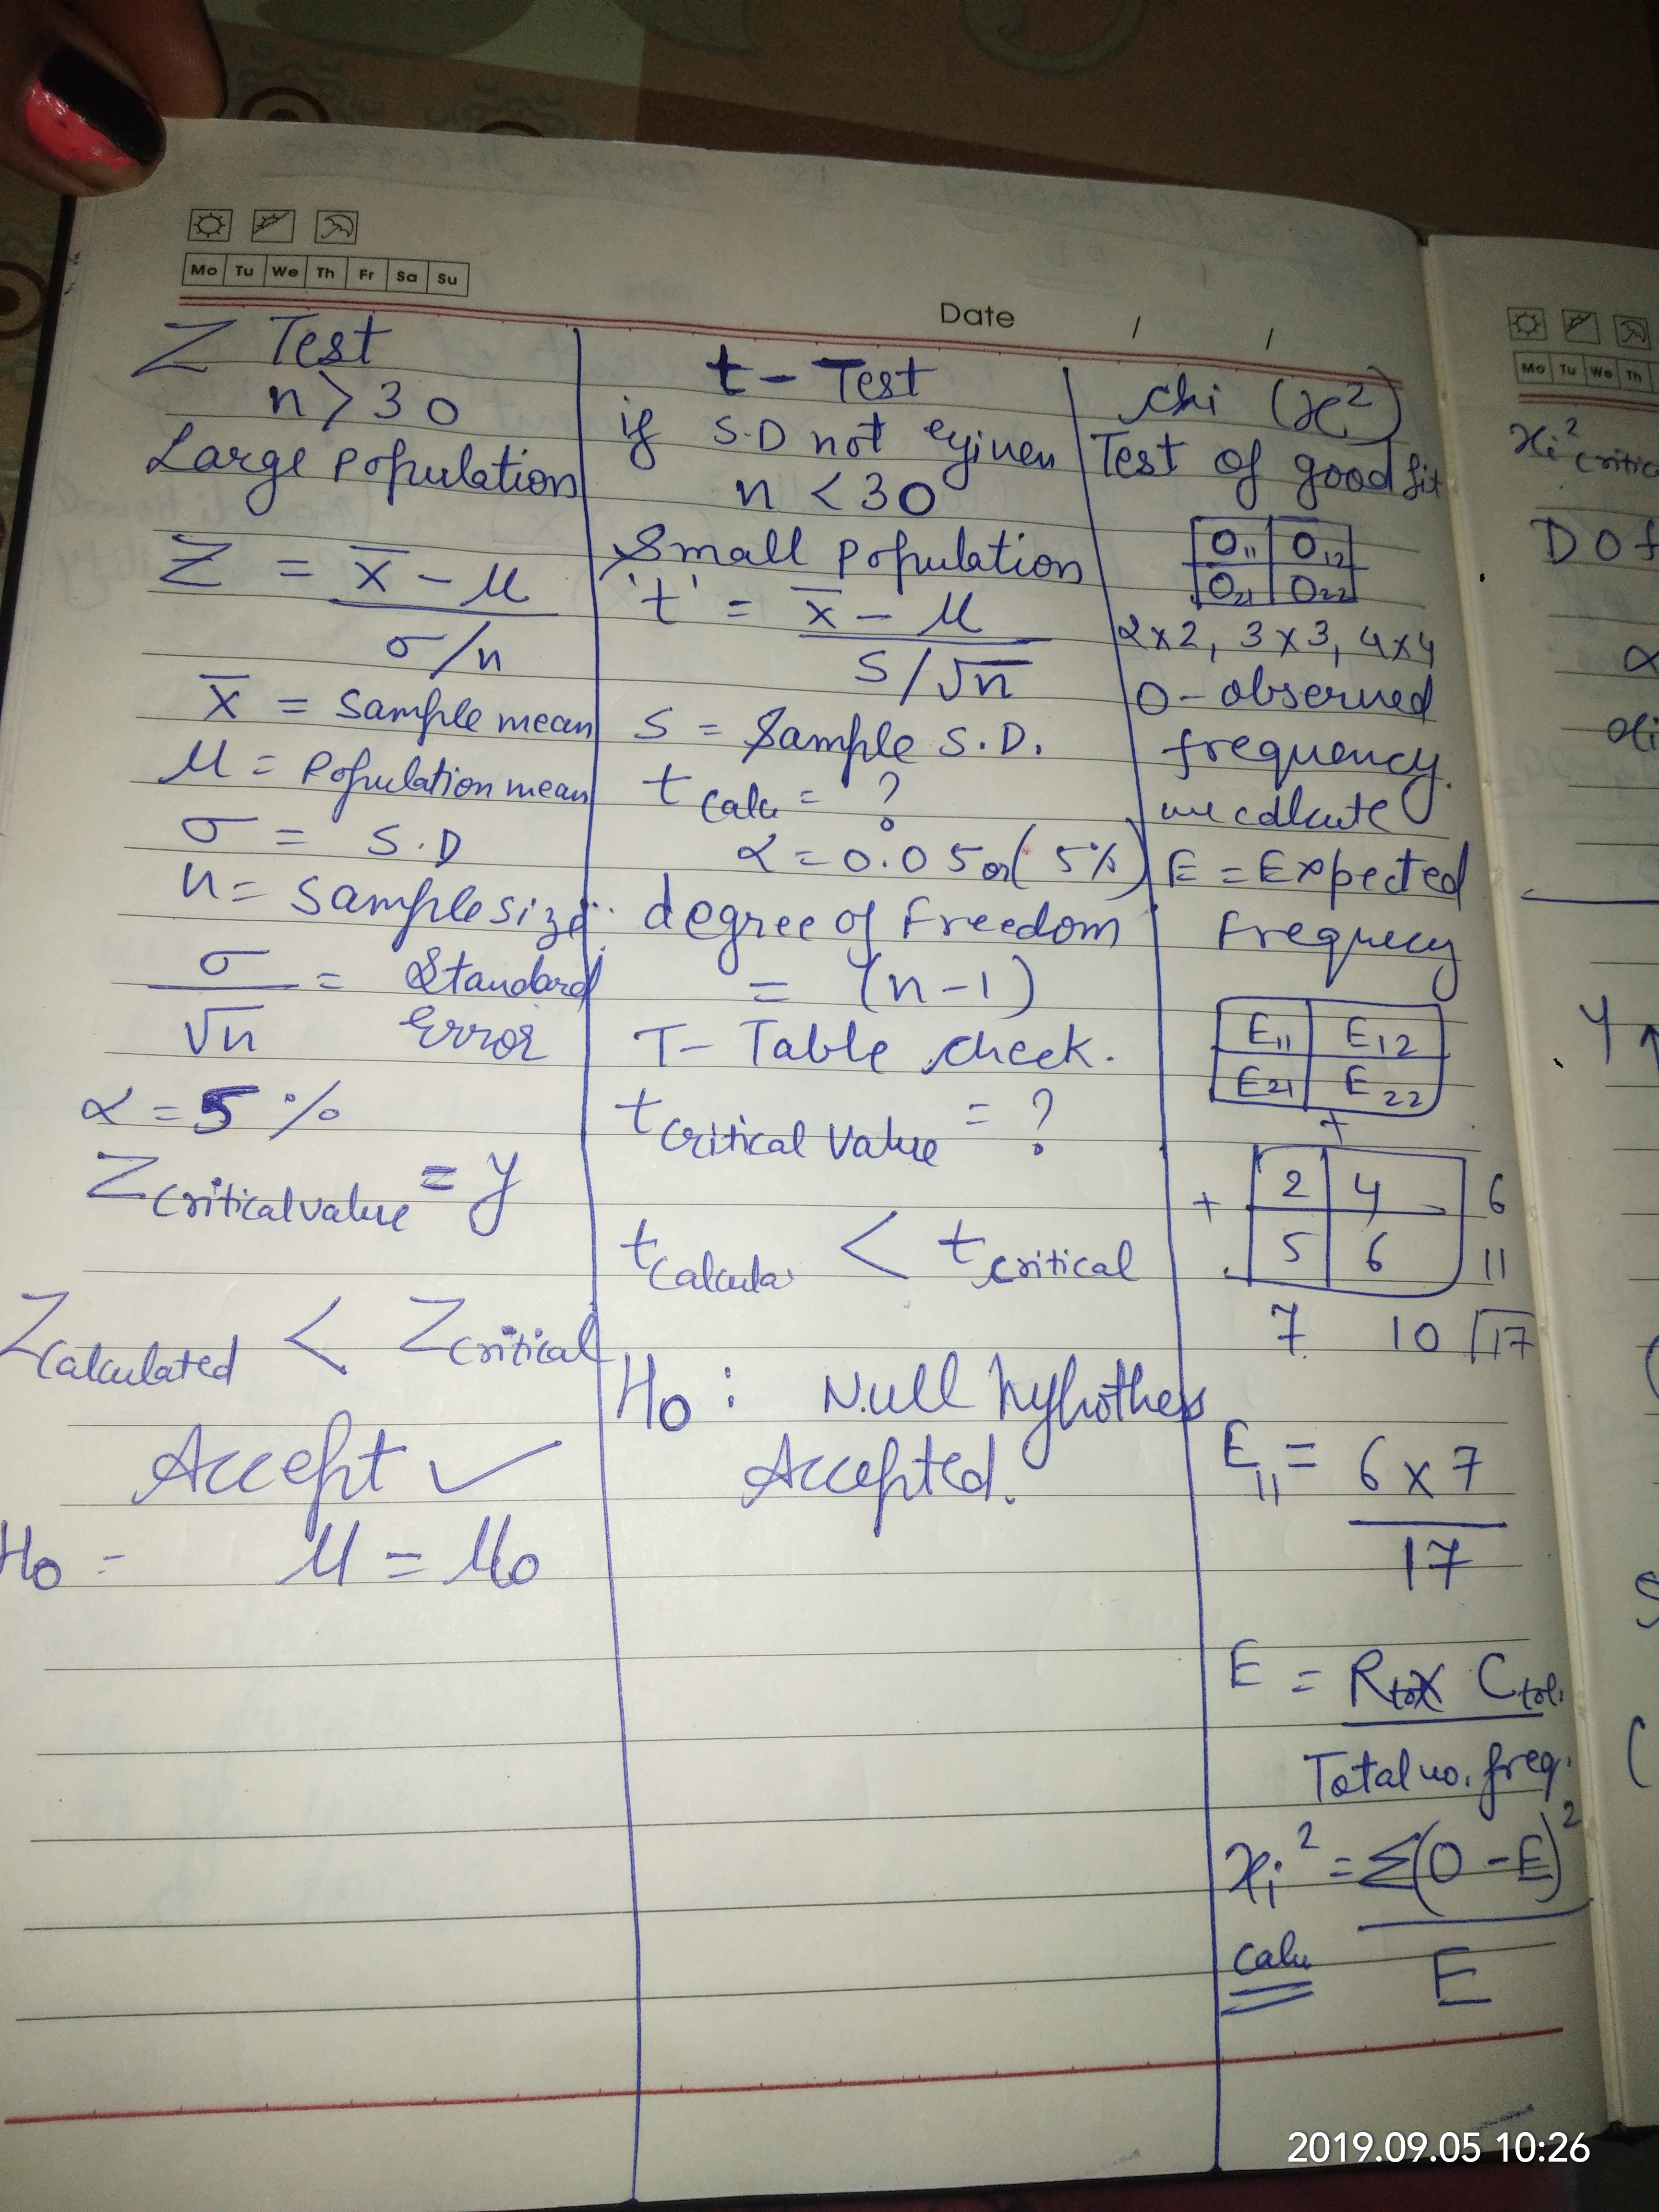 Mo Tu We Th Fr Sa Su
Date / /
Z Test
n > 30
Large Population
Z = x̄ - μ
σ/n
x̄ = Sample mean
μ = Population mean
σ = S.D
n = Sample size
σ = Standard
√n Error
α = 5 %
Z Critical value = y
Z Calculated < Z Critical
Accept ✓
H0 = μ = μ0
t - Test
if S.D not given
n < 30
Small Population
't' = x̄ - μ
S/√n
S = Sample S.D.
t Calu = ?
α = 0.05 or (5%)
degree of Freedom
= (n-1)
T- Table check.
t Critical Value = ?
t Calcula < t critical
H0 : Null hyhothes
Accepted.
Chi (x²)
Test of good fit
O11 O12
O21 O22
2x2, 3x3, 4x4
O - observed
frequency.
we calkute
E = Expected
Frequecy
E11 E12
E21 E22
+
+ 2 4 6
5 6 11
7 10 17
E11 = 6 x 7
17
E = Rtot x Ctol.
Total no. freq.
xi² = Σ(O - E)²
Calu E
Mo Tu We Th
xi² critic
DOf
α
Y
2019.09.05 10:26